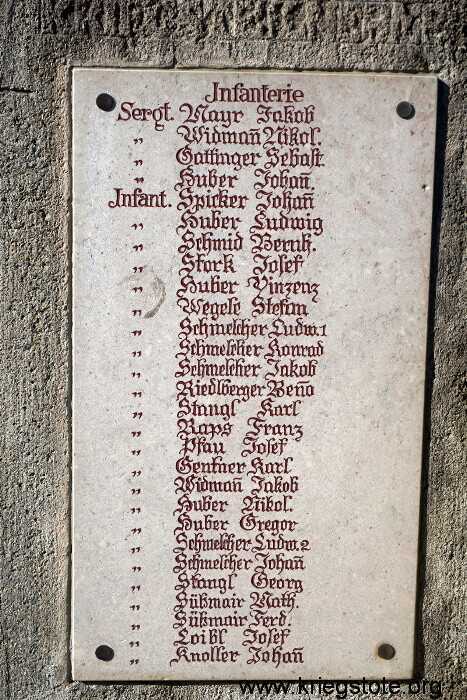 Infanterie
Sergt. Mayr Jakob
„ Widmañ Nikol.
„ Gattinger Sebast.
„ Huber Johañ.
Infant. Spicker Johañ
„ Huber Ludwig
„ Schmid Bernh.
„ Stork Josef
„ Huber Vinzenz
„ Wegele Stefan
„ Schmelcher Ludw. 1
„ Schmelcher Konrad
„ Schmelcher Jakob
„ Riedlberger Beño
„ Stangl Karl
„ Raps Franz
„ Pfau Josef
„ Gentner Karl
„ Widmañ Jakob
„ Huber Nikol.
„ Huber Gregor
„ Schmelcher Ludw. 2
„ Schmelcher Johañ
„ Stangl Georg
„ Süßmair Math.
„ Süßmair Ferd.
„ Loibl Josef
„ Knoller Johañ
www.kriegstote.org